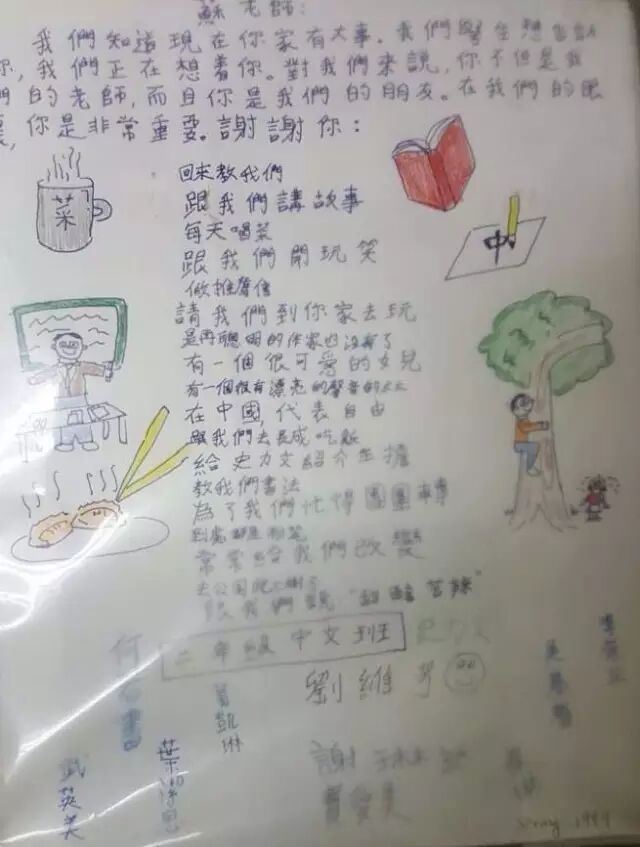 蘇老師:
我們知道現在你家有大事。我們學生想告訴
你,我們正在想着你。對我們來說,你不但是我
們的老師,而且你是我們的朋友。在我們的眼
裏,你是非常重要。謝謝你:
回來教我們
跟我們講故事
每天喝菜
跟我們開玩笑
做推薦信
請我們到你家去玩
是再聰明的作家也沒有了
有一個很可愛的女兒
有一個很有漂亮的聲音的太太
在中國,代表自由
跟我們去長成吃飯
給史力文紹介生擔
教我們書法
為了我們忙得團團轉
到處都是粉筆
常常給我們改變
去公園爬上樹了
跟我們說"甜酸苦辣"
二年級中文班
史力文
劉維
葛凱琳
武英美
謝
菜
中
1989